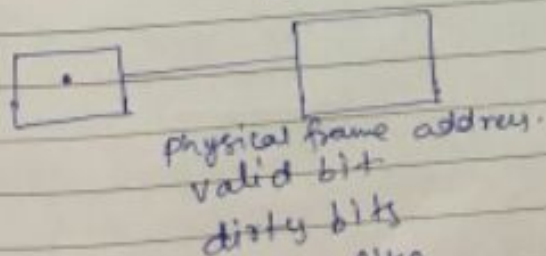 physical frame address.
valid bit
dirty bits